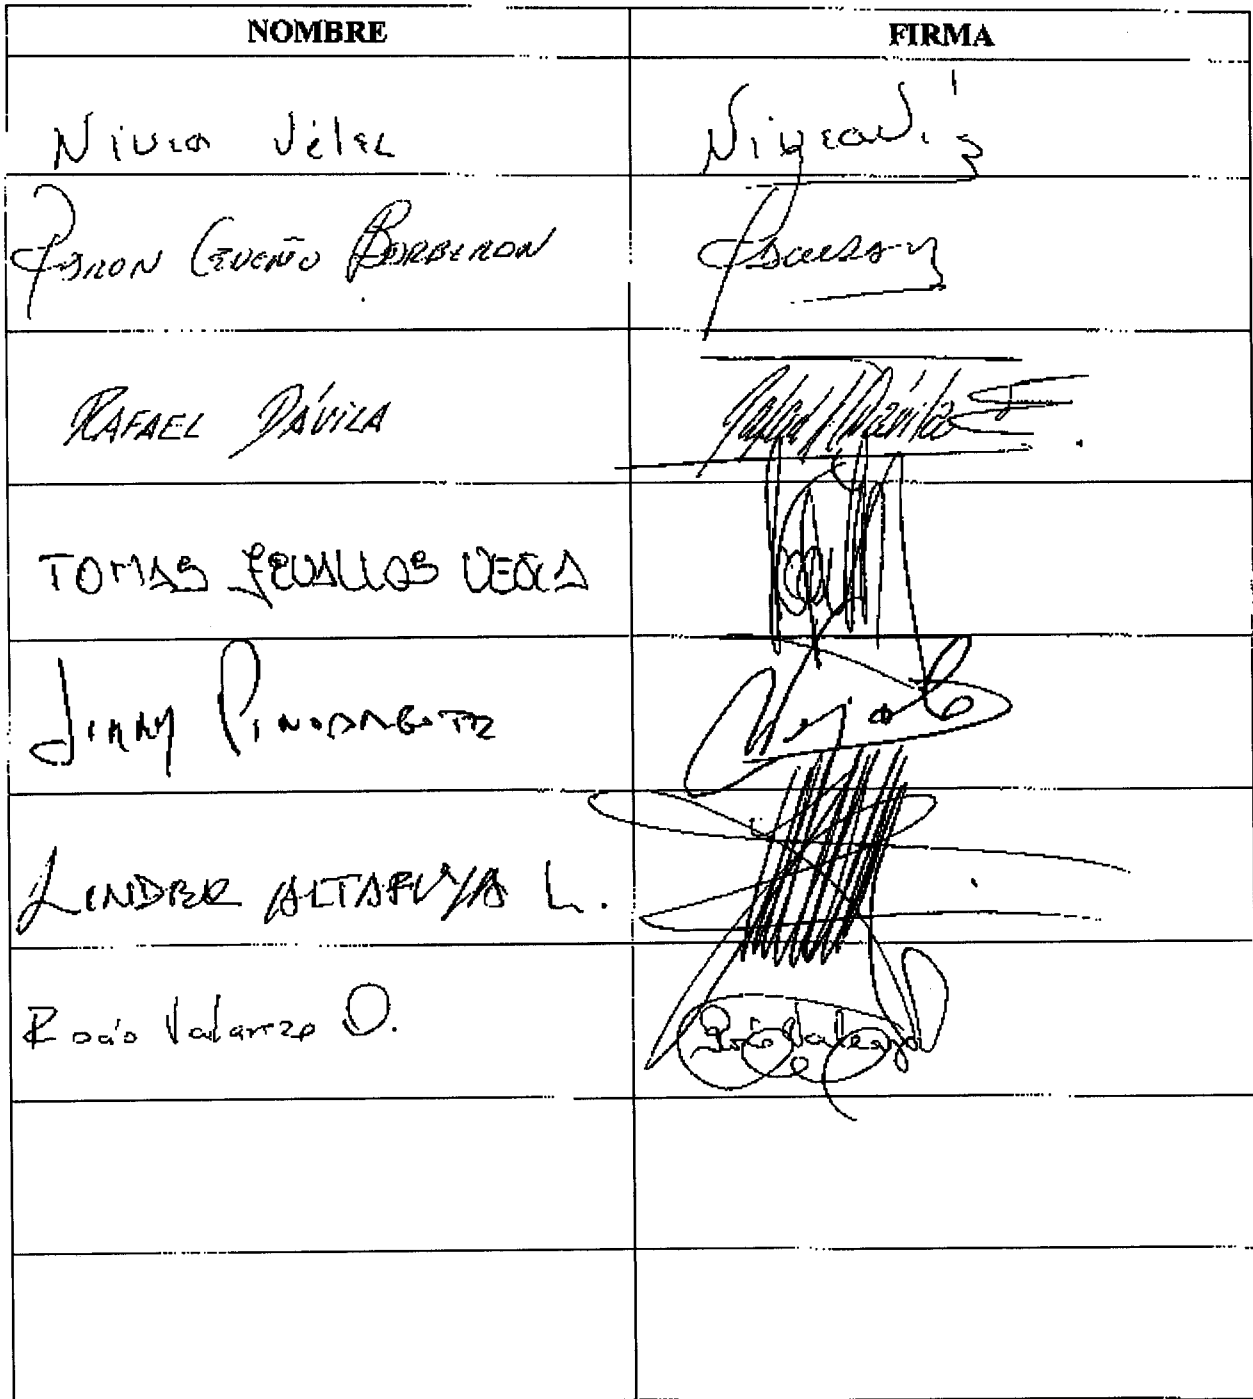 NOMBRE FIRMA
Nívea Vélez Nívea V.
Cedeño
RAFAEL DÁVILA Rafael Dávila
TOMAS ZEVALLOS VEGA
JIMMY PINOARGOTE
LINDER ALTAFUYA L.
Rocío Valarezo O. Rocío Valarezo